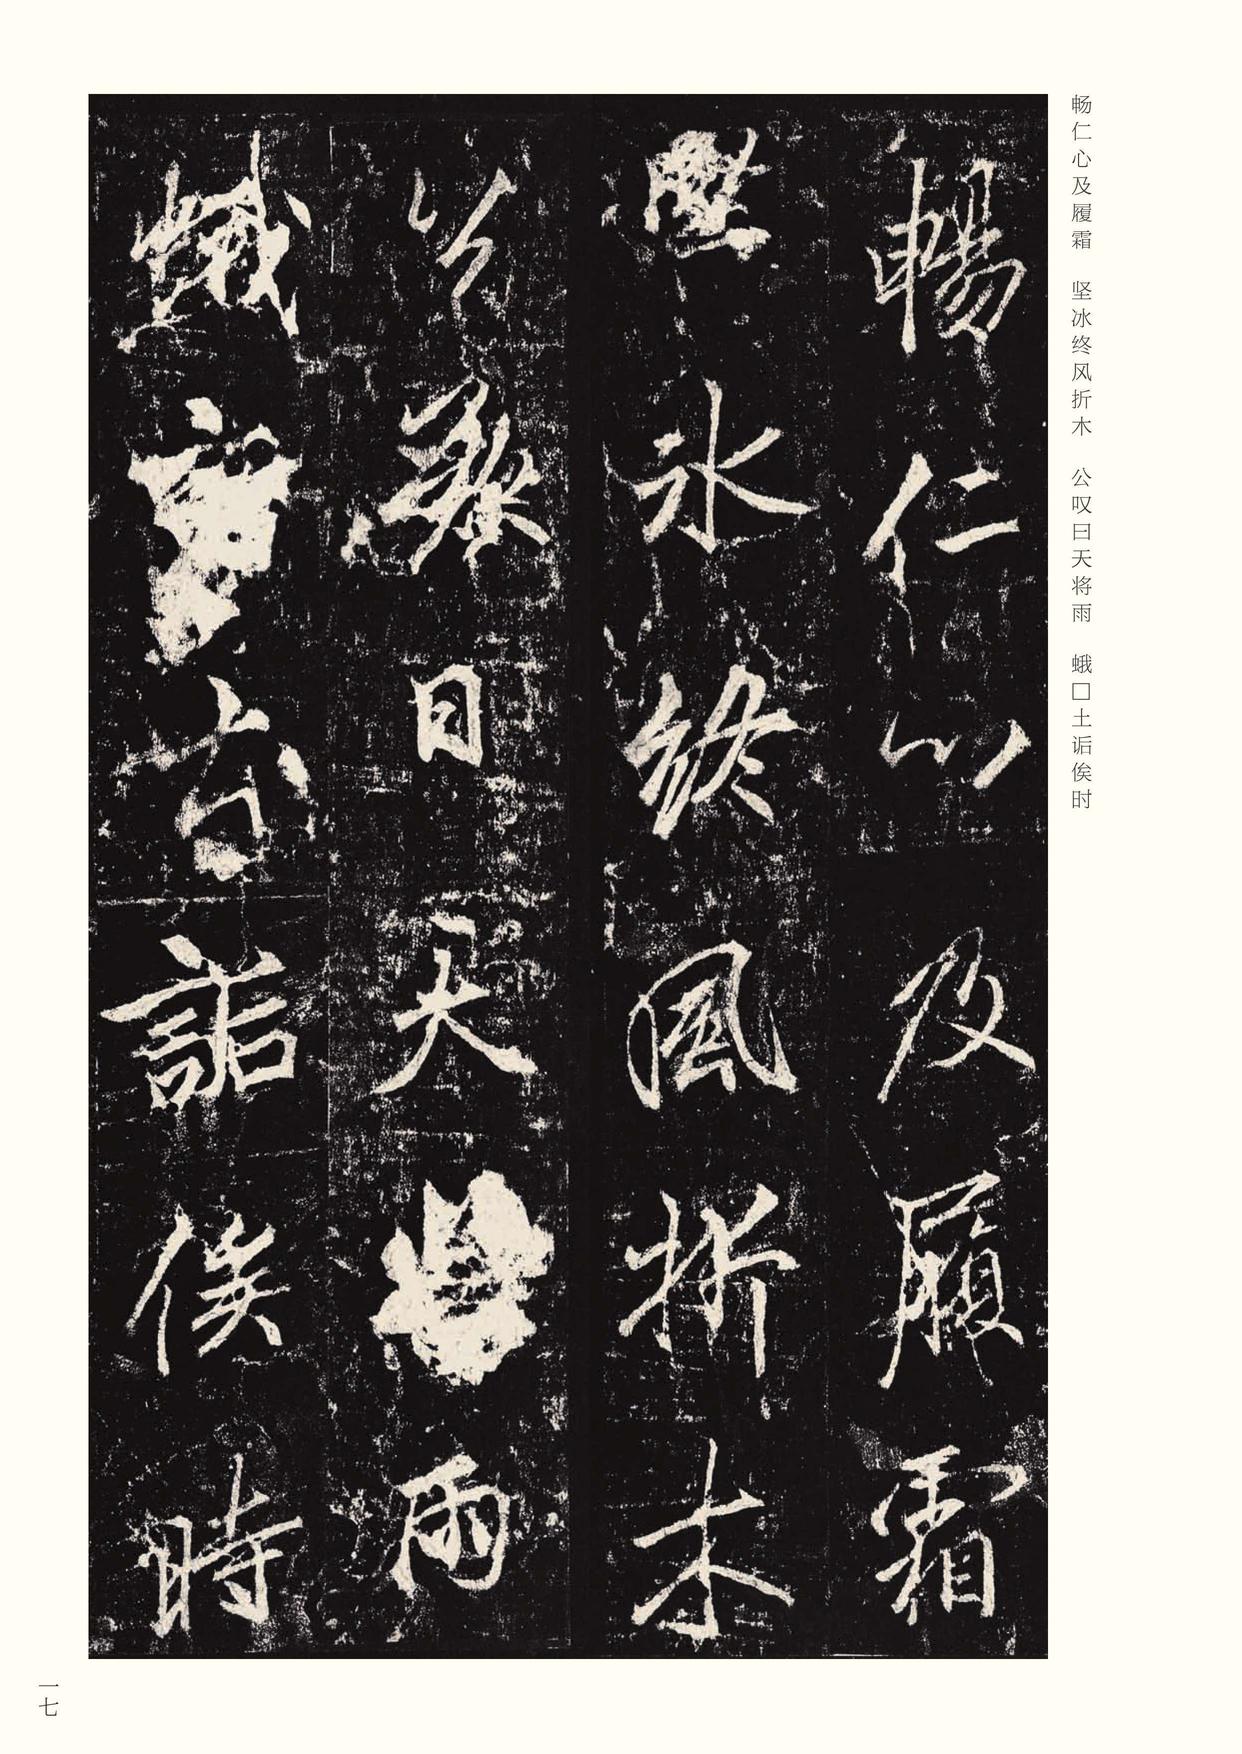 畅仁心及履霜 坚冰终风折木 公叹曰天将雨 蛾□土诟俟时
暢仁心及履霜
堅冰終風折木
公歎曰天將雨
蛾
詬俟時
一七